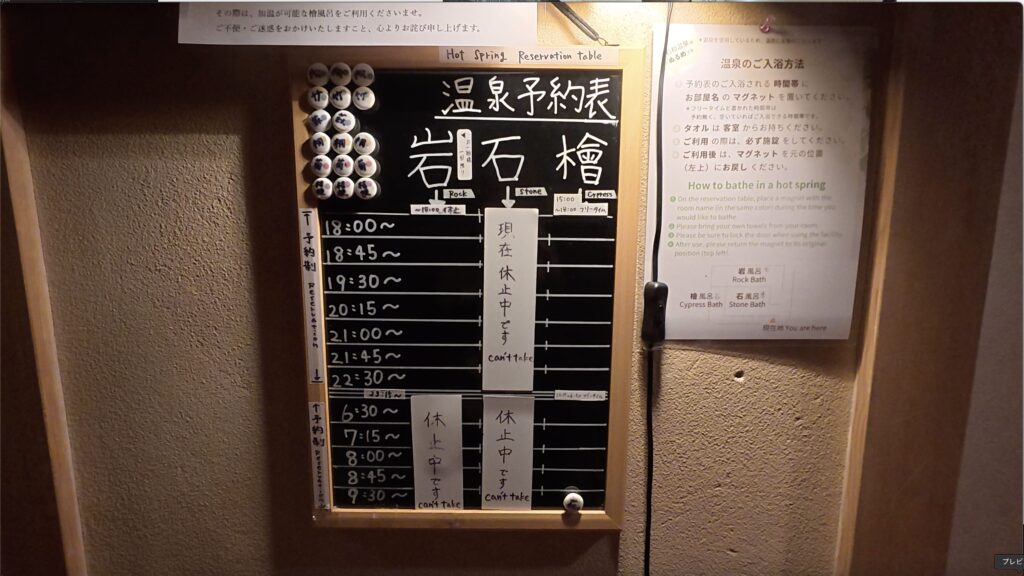 その際は、加温が可能な檜風呂をご利用くださいませ。
ご不便・ご迷惑をおかけいたしますこと、心よりお詫び申し上げます。
Hot Spring Reservation table
温泉予約表
岩 石 檜
Rock Stone Cypress
~18:00 休止
15:00
~18:00 フリータイム
↑予約制 Reservation↓
18:00〜
18:45〜
19:30〜
20:15〜
21:00〜
21:45〜
22:30〜
現在休止中です
can't take
23:15〜
↑予約制 Reservation
6:30〜
7:15〜
8:00〜
8:45〜
9:30〜
休止中です
can't take
休止中です
can't take
ぬるめ
温泉のご入浴方法
予約表のご入浴される 時間帯 に
お部屋名 の マグネット を置いてください。
*フリータイムと書かれた時間帯は
予約無く、空いていればご入浴ができる時間帯です。
タオル は 客室 からお持ちください。
ご利用 の際は、必ず施錠 をしてください。
ご利用後 は、マグネット を元の位置
(左上) にお戻しください。
How to bathe in a hot spring
On the reservation table, place a magnet with the
room name (in the same color) during the time you
would like to bathe.
Please bring your own towels from your room.
Please be sure to lock the door when using the facility.
After use, please return the magnet to its original
position (top left).
岩 風呂
Rock Bath
檜 風呂 石 風呂
Cypress Bath Stone Bath
現在地 You are here
プレビ